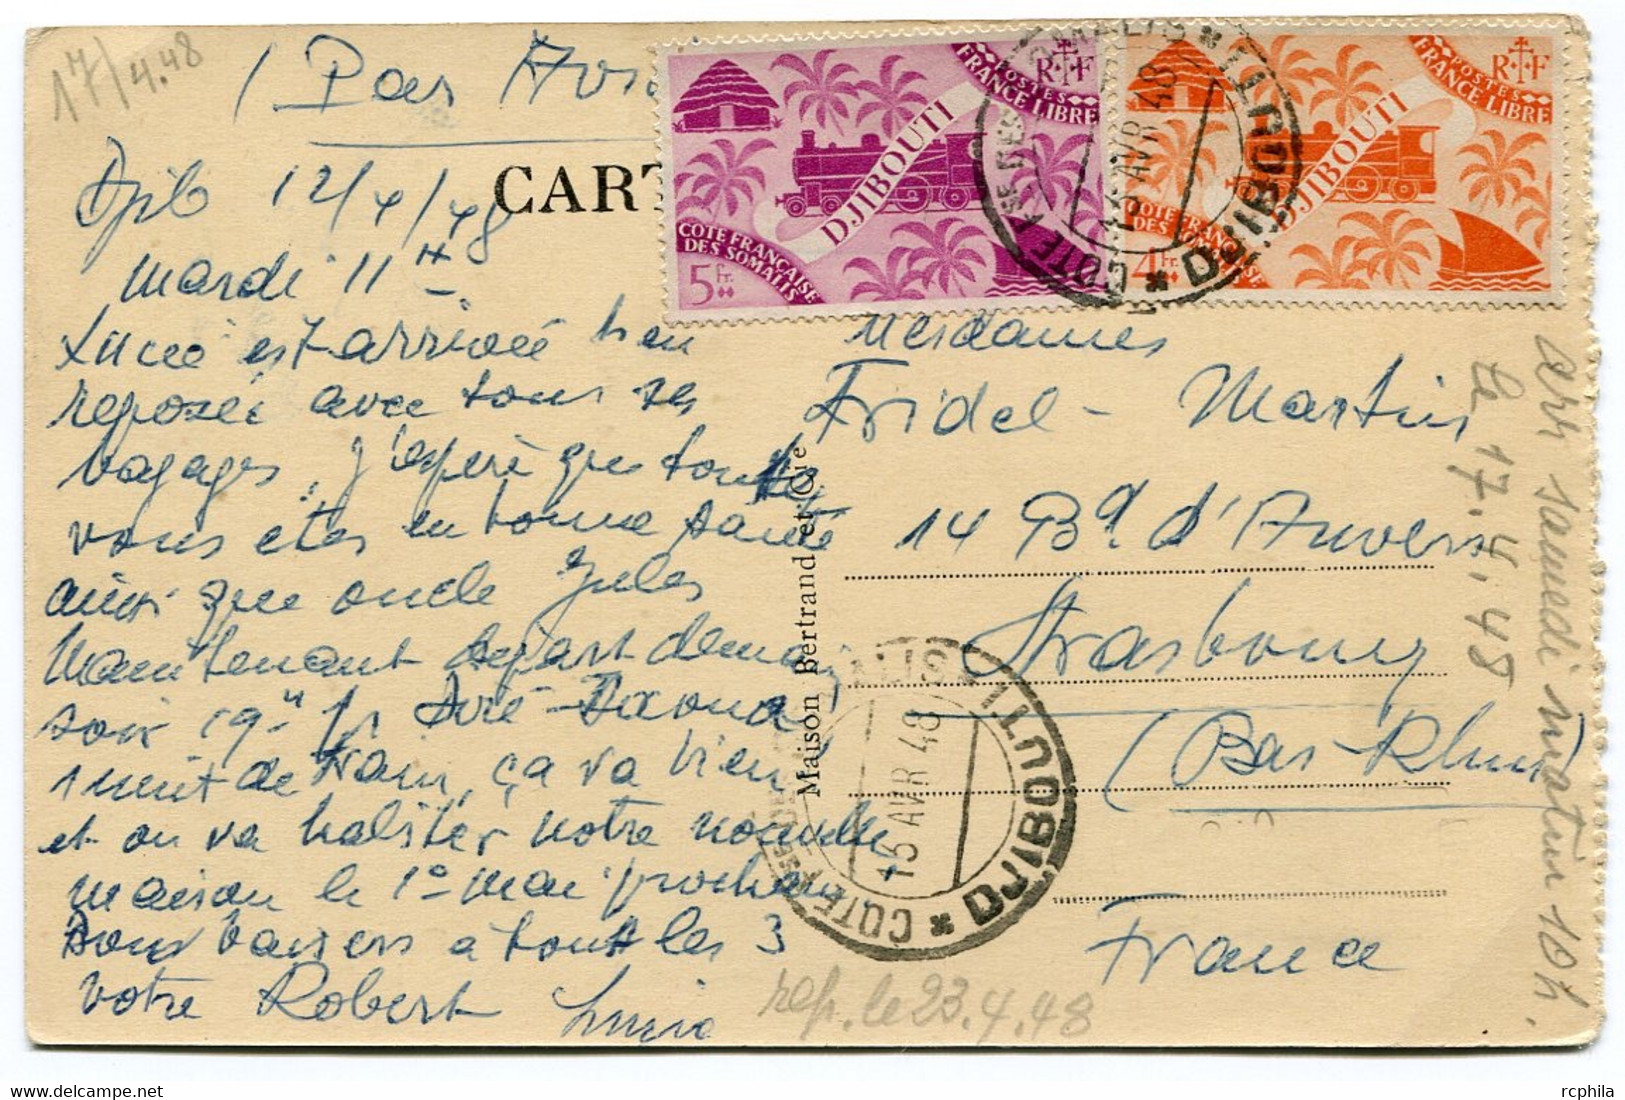 17/4.48
(Par Avi
CART
Djib 12/4/48
Mardi 11 H
Lucie est arrivée bien
reposée avec tous ses
bagages, j'espère que toutes
vous êtes en bonne santé
ainsi que oncle Jules
Maintenant départ demain
soir 19h pr Diré-Daoua
1 nuit de train, ça va bien
et on va habiter notre nouvelle
maison le 1° mai prochain
Doux baisers à toutes les 3
votre Robert Lucie
POSTES
FRANCE LIBRE
RF
DJIBOUTI
COTE FRANÇAISE
DES SOMALIS
5 Fr.
POSTES
FRANCE LIBRE
RF
DJIBOUTI
COTE FRANÇAISE
DES SOMALIS
4 Fr.
COTE FSE DES SOMALIS * DJIBOUTI *
AVR 48
Maison Bertrand et Cie
Mesdames
Fridel - Martin
14 Bd d'Anvers
Strasbourg
(Bas-Rhin)
France
COTE DJIBOUTI *
15 AVR 48
rep. le 23.4.48
arr. samedi matin 10h.
le 17.4.48
rcphila